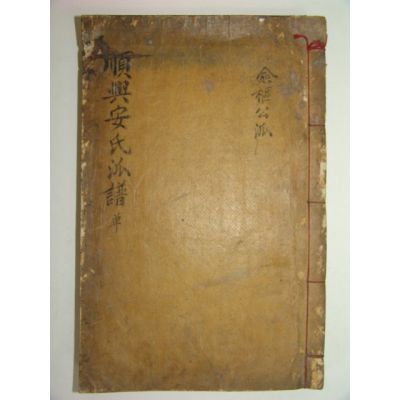 順興安氏泒譜 單
僉樞公泒